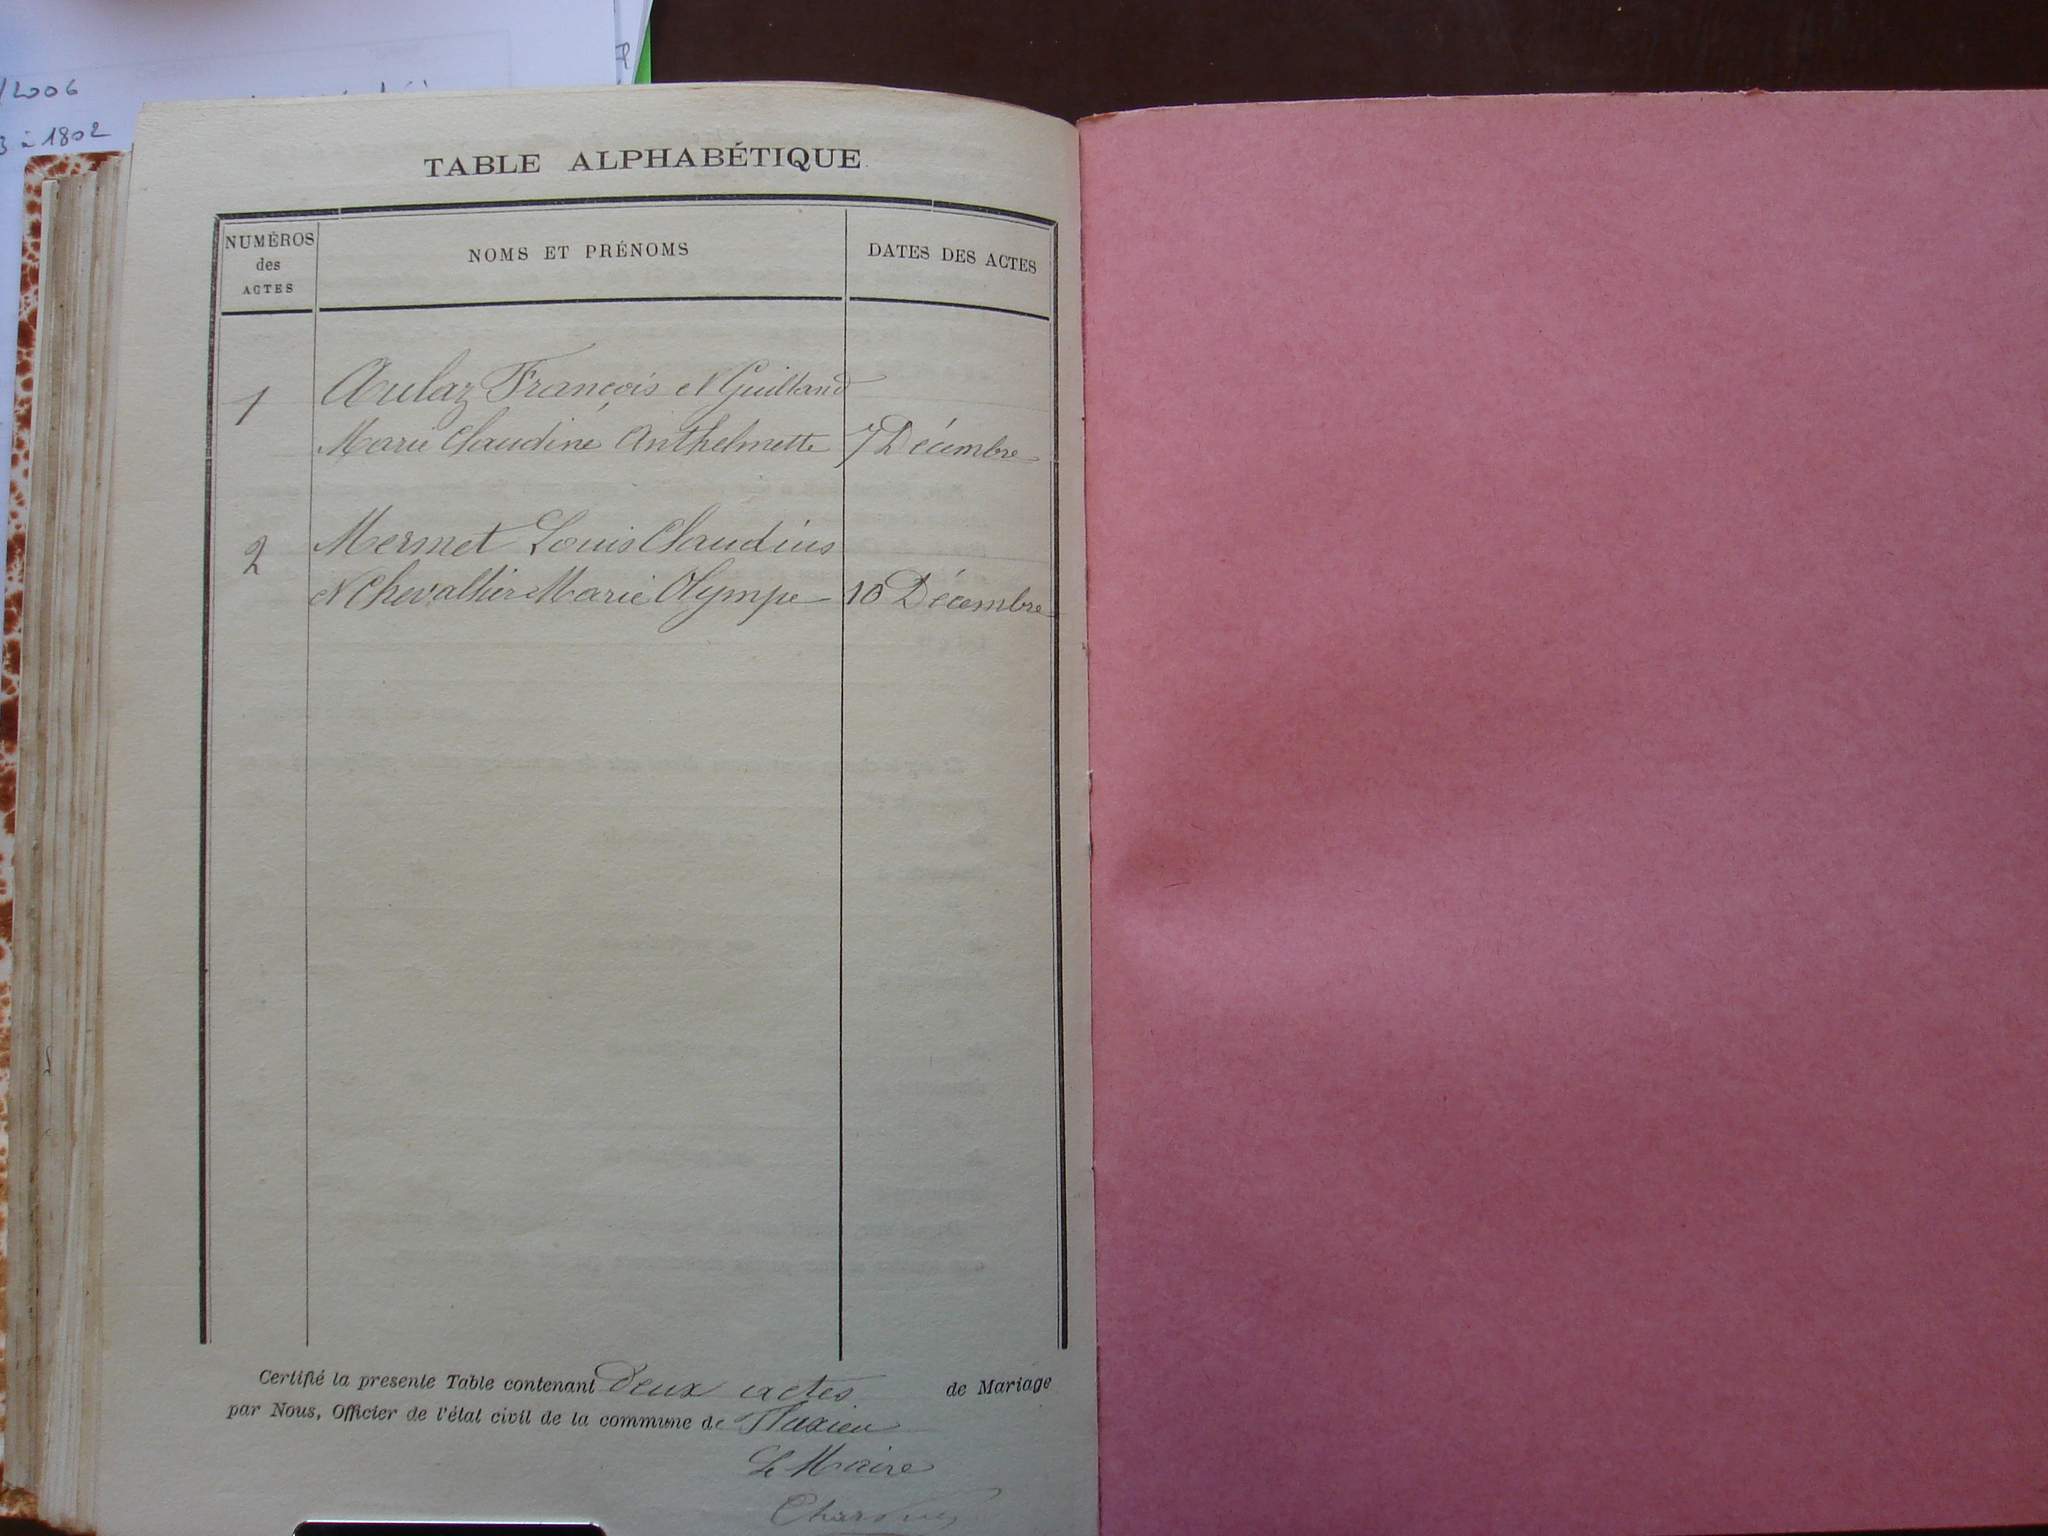 /2006
3 à 1802
TABLE ALPHABÉTIQUE
NUMÉROS des ACTES
NOMS ET PRÉNOMS
DATES DES ACTES
1 Aulaz François et Guilland
Marie Claudine Anthelmette 7 Décembre
2 Mermet Louis Claudius
et Chevallier Marie Olympe 10 Décembre
Certifié la presente Table contenant deux actes de Mariage
par Nous, Officier de l'état civil de la commune de Flaxieu
Le Maire